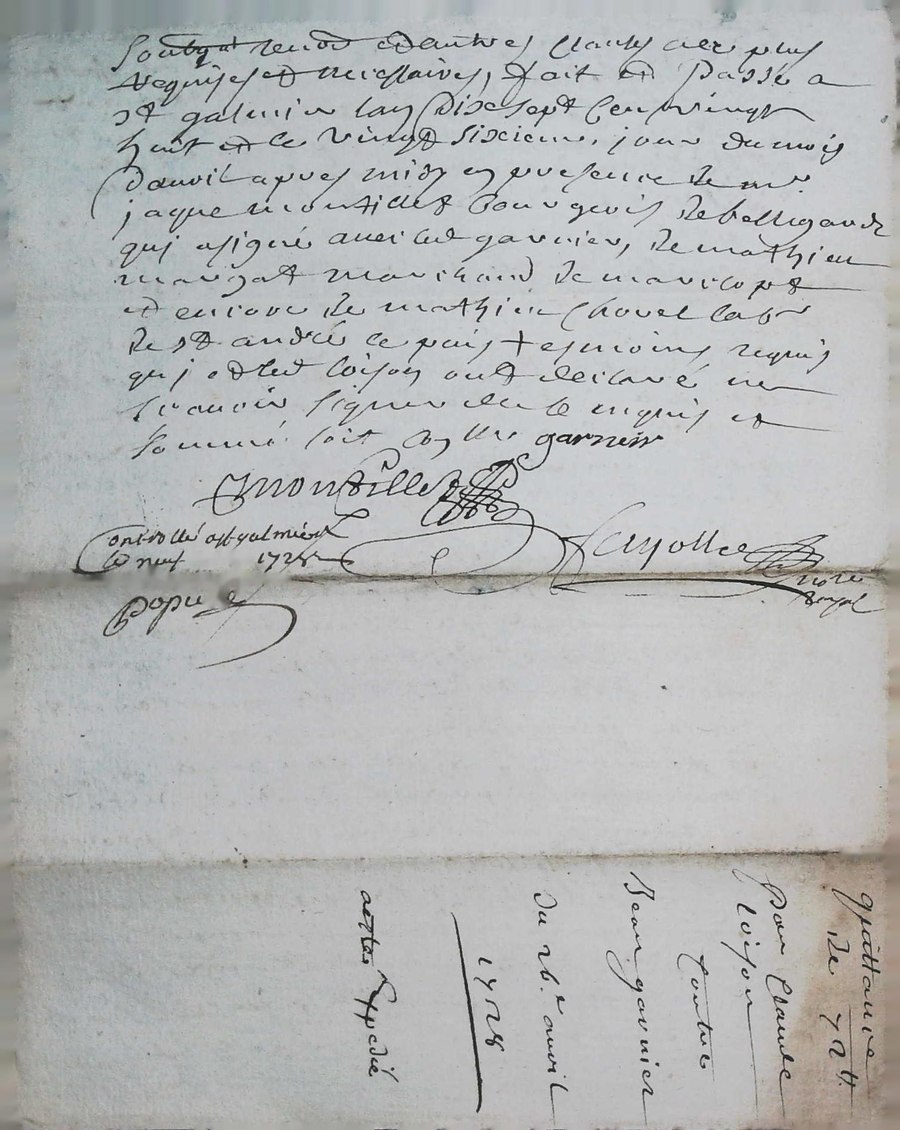 et autres clauses avec plus
requises et necessaires, fait et passé a
st galmier lan dix sept cen vingt
huit et le vingt sixieme jour du mois
davril apres midy en presence de mr
jaque montillet bourgeois de bellegarde
qui a signé avec led garnier, de mathieu
marchand de
et encore de mathieu chovet labr
de st andré le puis tesmoins requis
qui et led loison ont declaré ne
scavoir signer de ce enquis et
sommé soit garnier
montillet
controllé a st galmier
le neuf 1728
notre
royal
quittance
de 72 tt
pour Claude
loison
contre
Jean garnier
du 26e avril
1728
Expedié